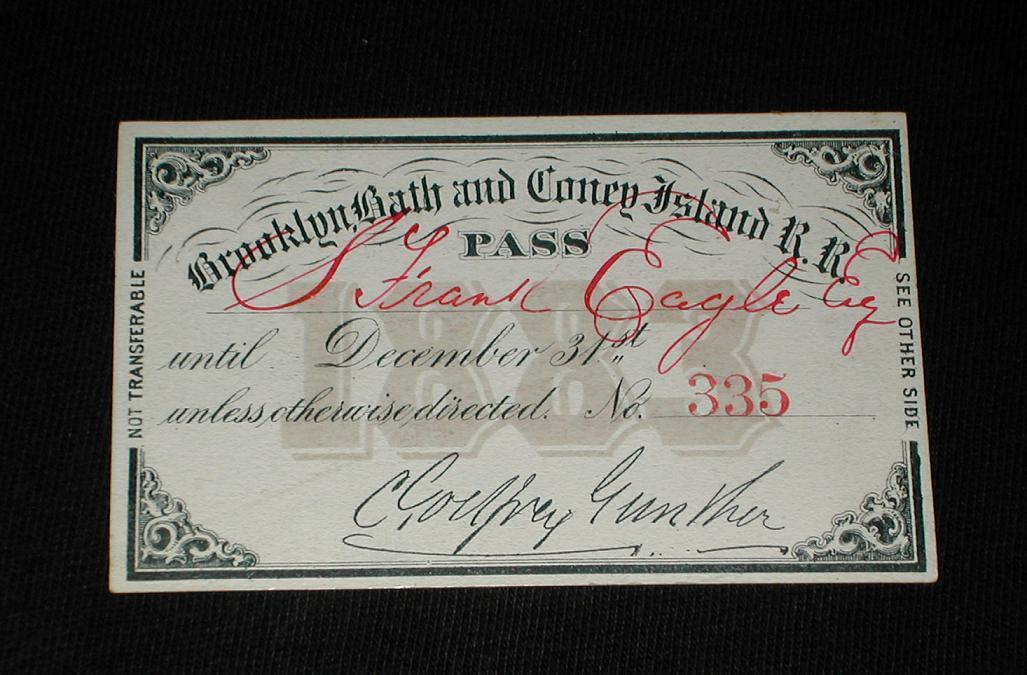 Brooklyn, Bath and Coney Island R. R.
PASS
S Frank Eagle Esq
until December 31st
unless otherwise directed. No. 335
1883
C Godfrey Gunther
NOT TRANSFERABLE
SEE OTHER SIDE